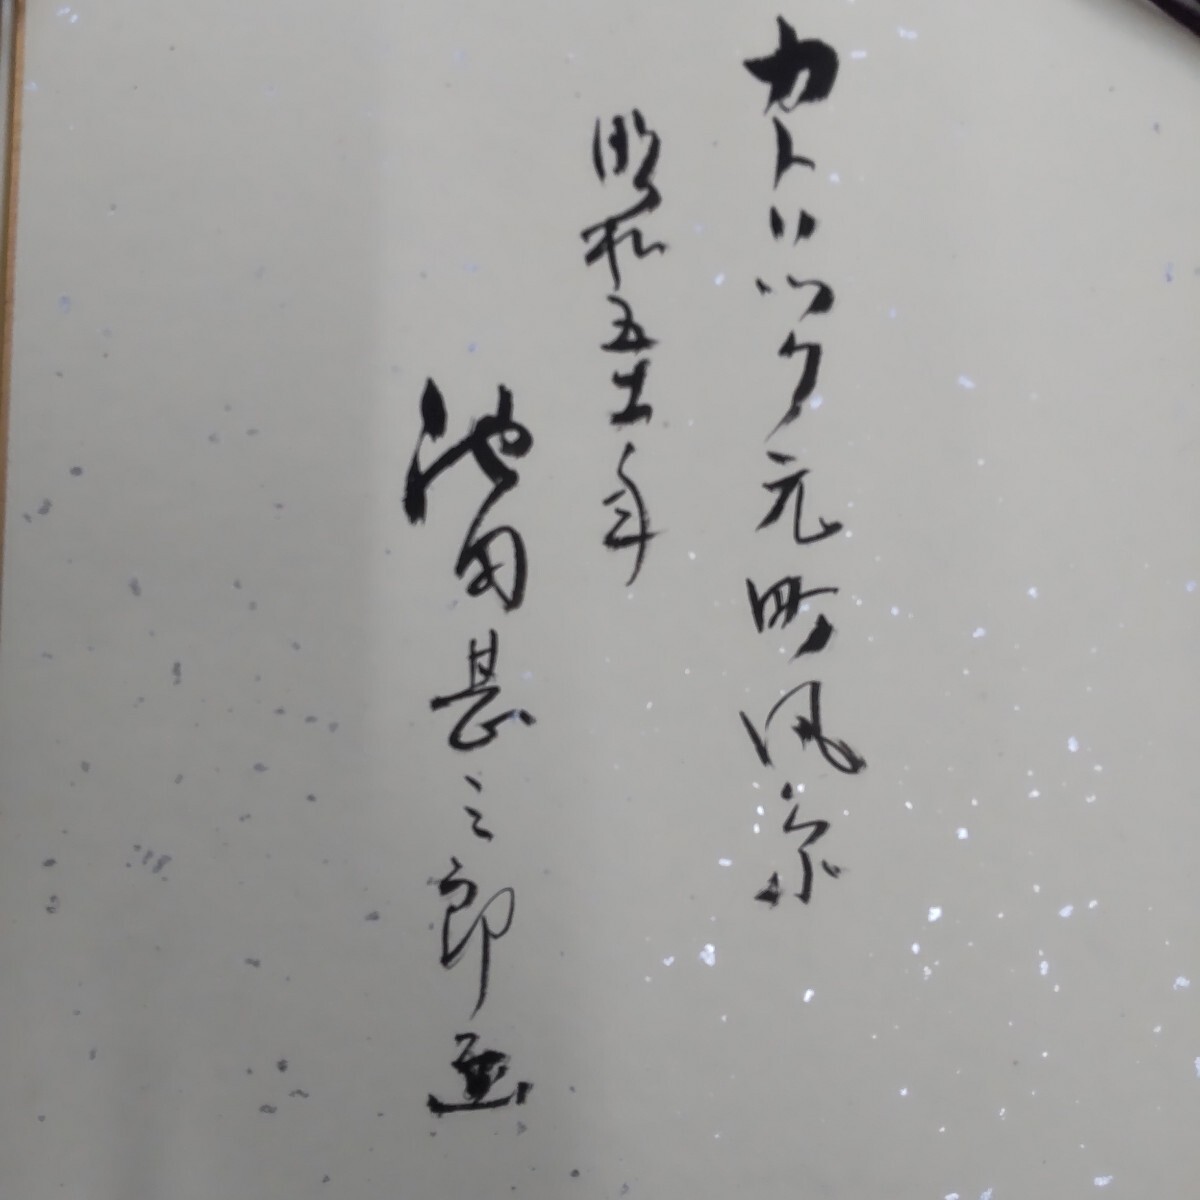 カトリック元町風景
昭和五十一年
池田甚三郎画